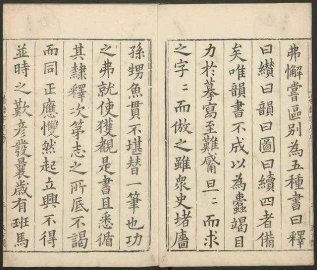 弗懈嘗區別為五種書曰釋
曰纘曰韻曰圖曰續四者備
矣唯韻書不成以為蠹竭目
力於摹寫至難旦〻而求
之字〻而倣之雖衆史堵廧
孫甥魚貫不堪替一筆也功
之弗就使獲覩是書且悉循
其隸釋次第志之所底不謁
而同正應然起立興不得
並時之歎彥發曩歲有班馬